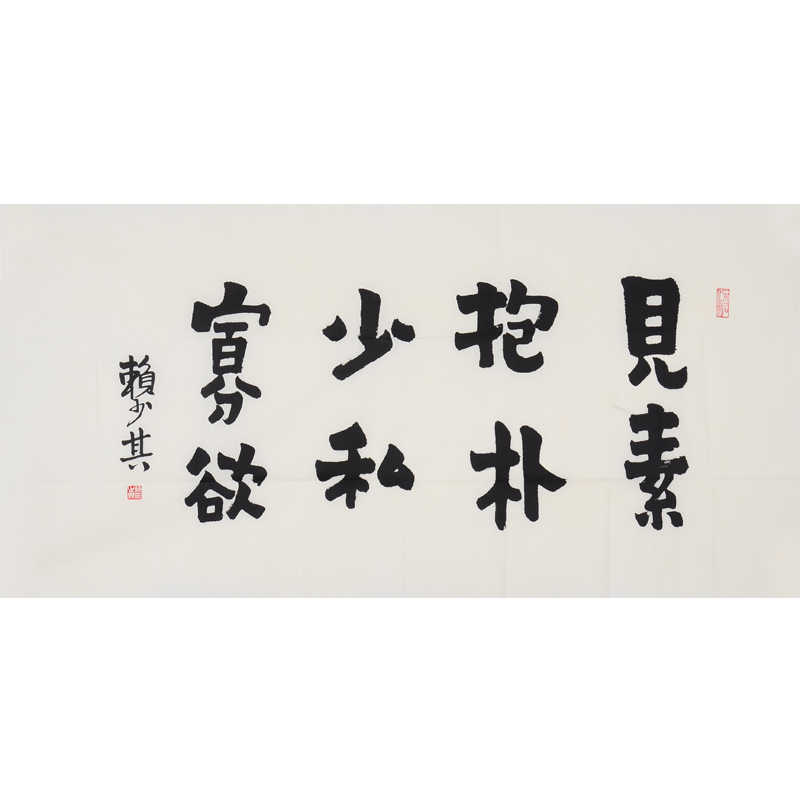 見素
抱朴
少私
寡欲
賴少其